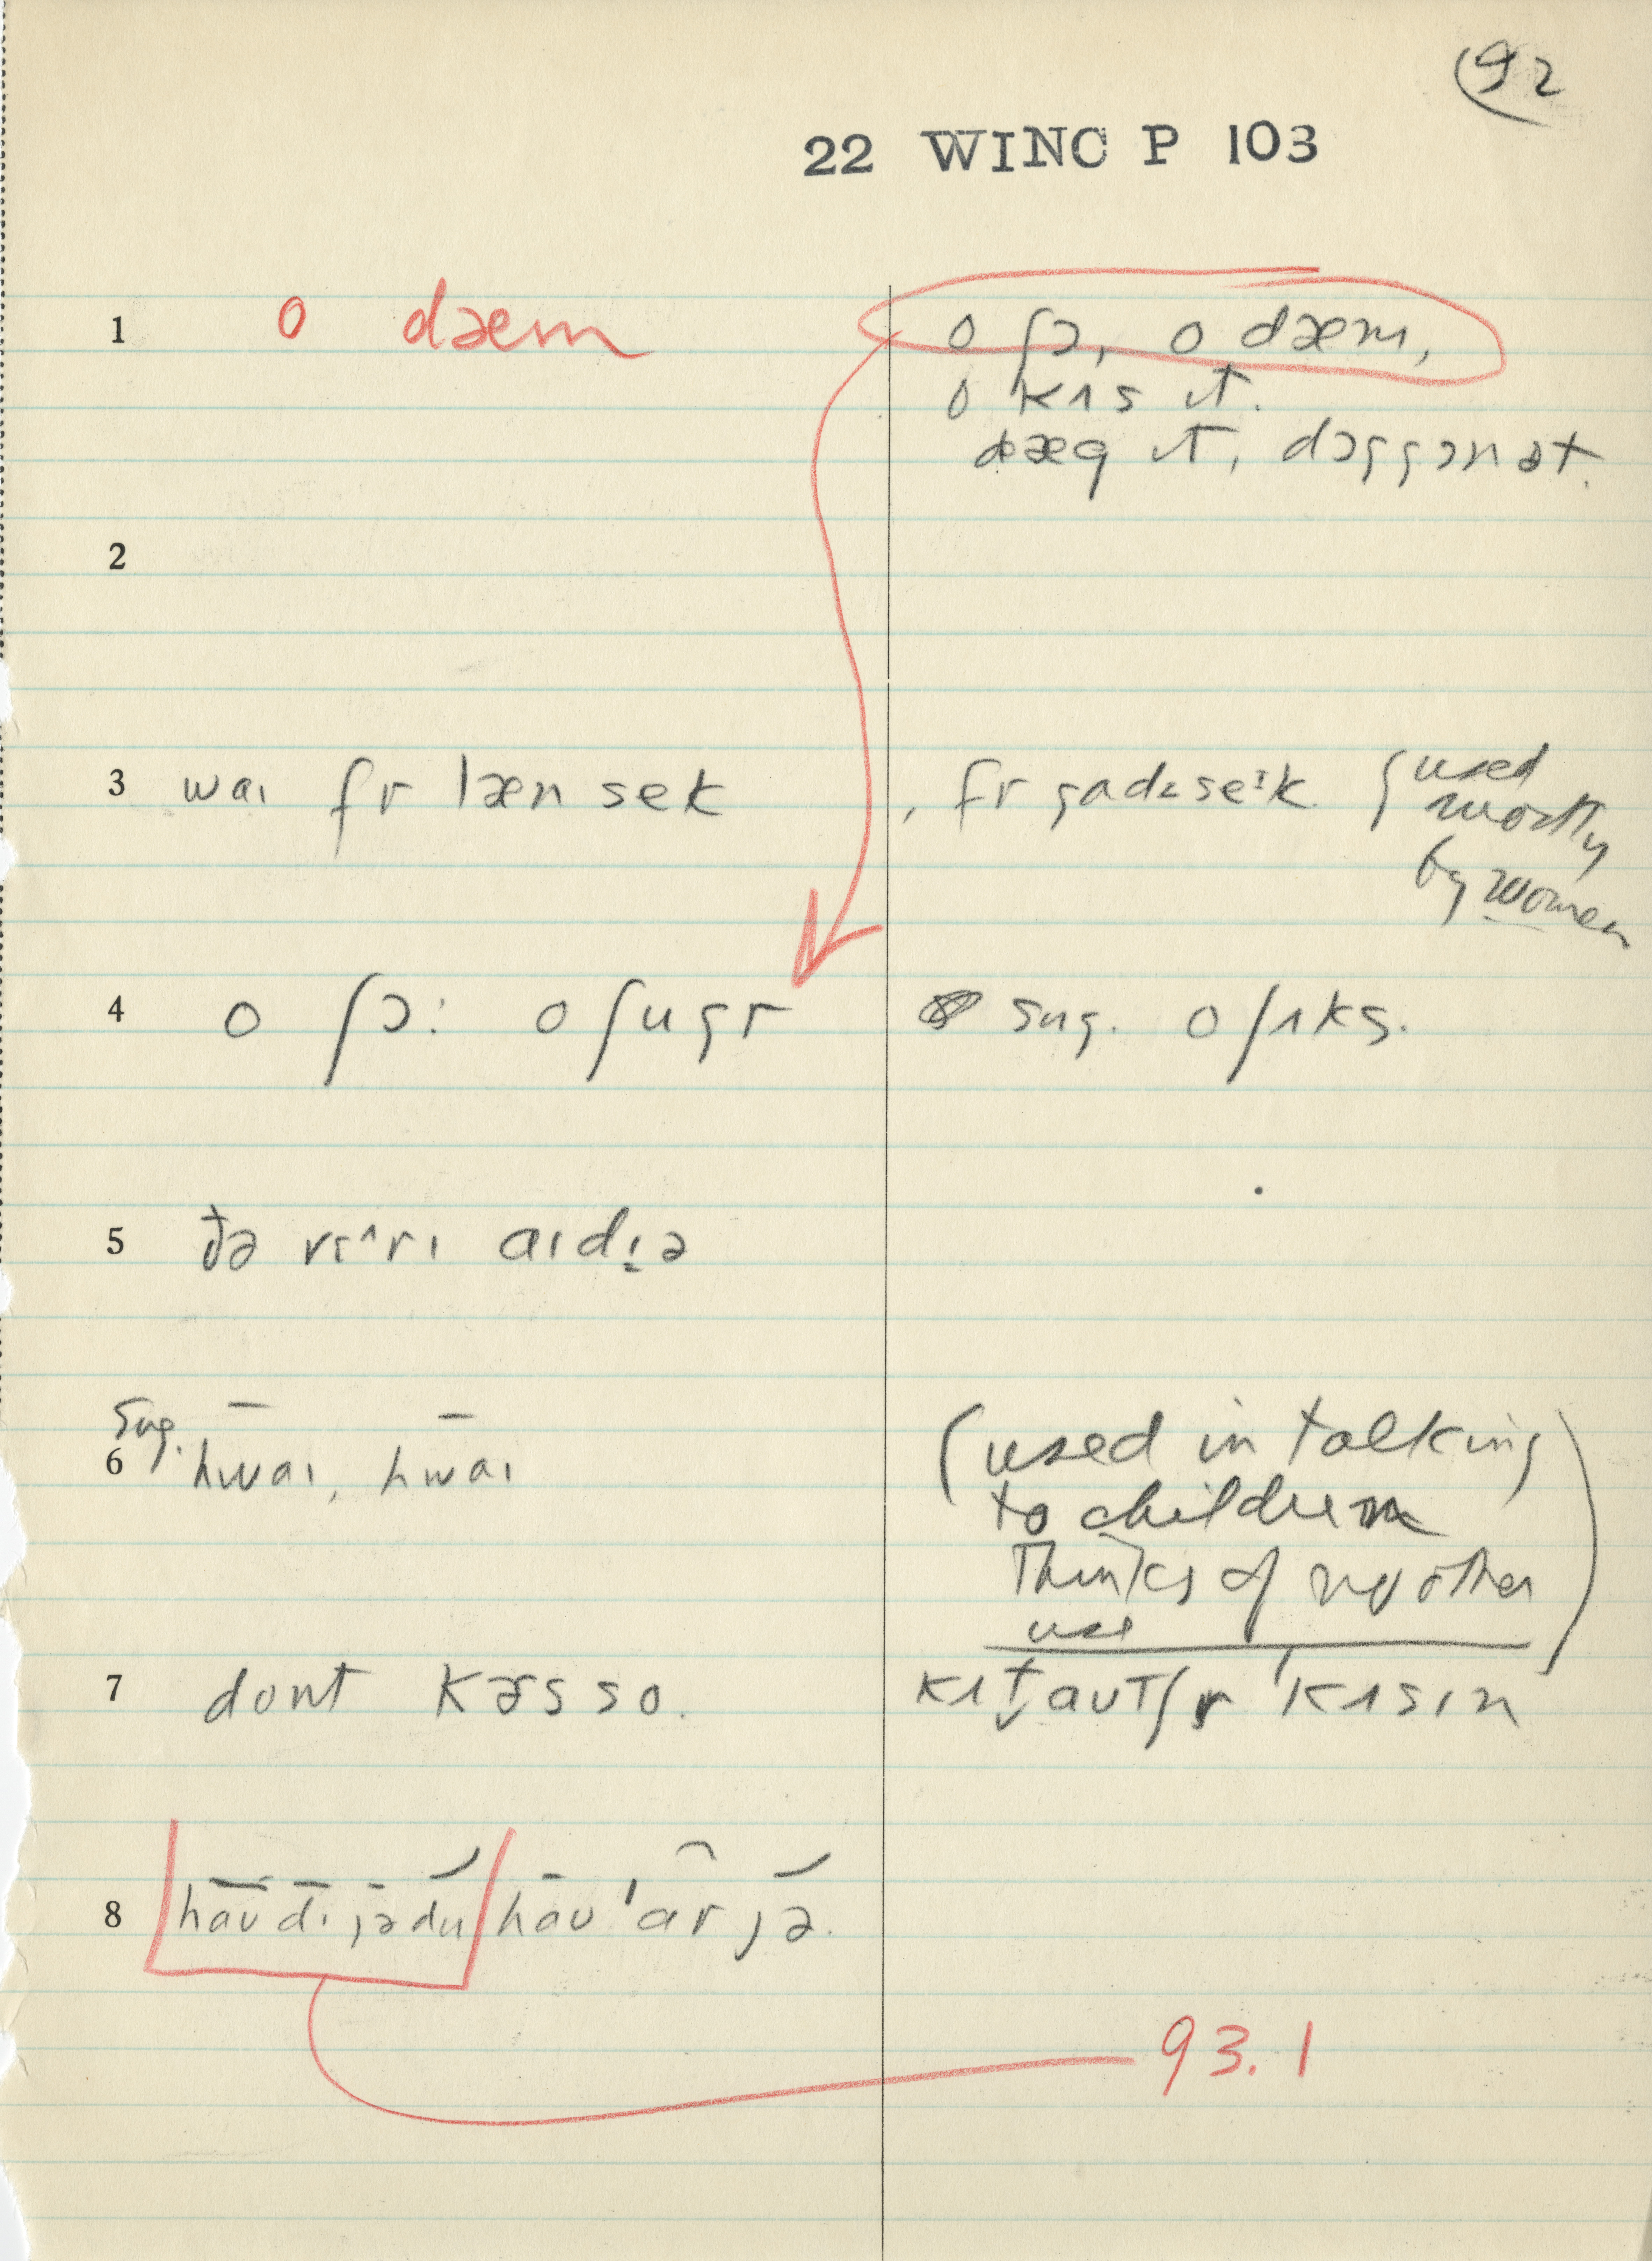 92
22 WINC P 103
1 o dæm
o ʃɔ, o dæm,
o kɪs ɪt.
dæg ɪt, dɔggɔnət.
2
3 waɪ fr læn sek
, fr gadz seɪk. {used
mostly
by women
4 o ʃɔ: o ʃugr
sug. o ʃɪks.
5 ðə vɛ^rɪ aɪdɪ̣ə
Sug.
6 hwaɪ, hwaɪ
(used in talking
to children
Thinks of no other
use)
7 dont kɚs so.
kɪt ̬aut ʃr ˈkɪsɪn
8 haudɪ jədu hau ˈar jə.
93.1